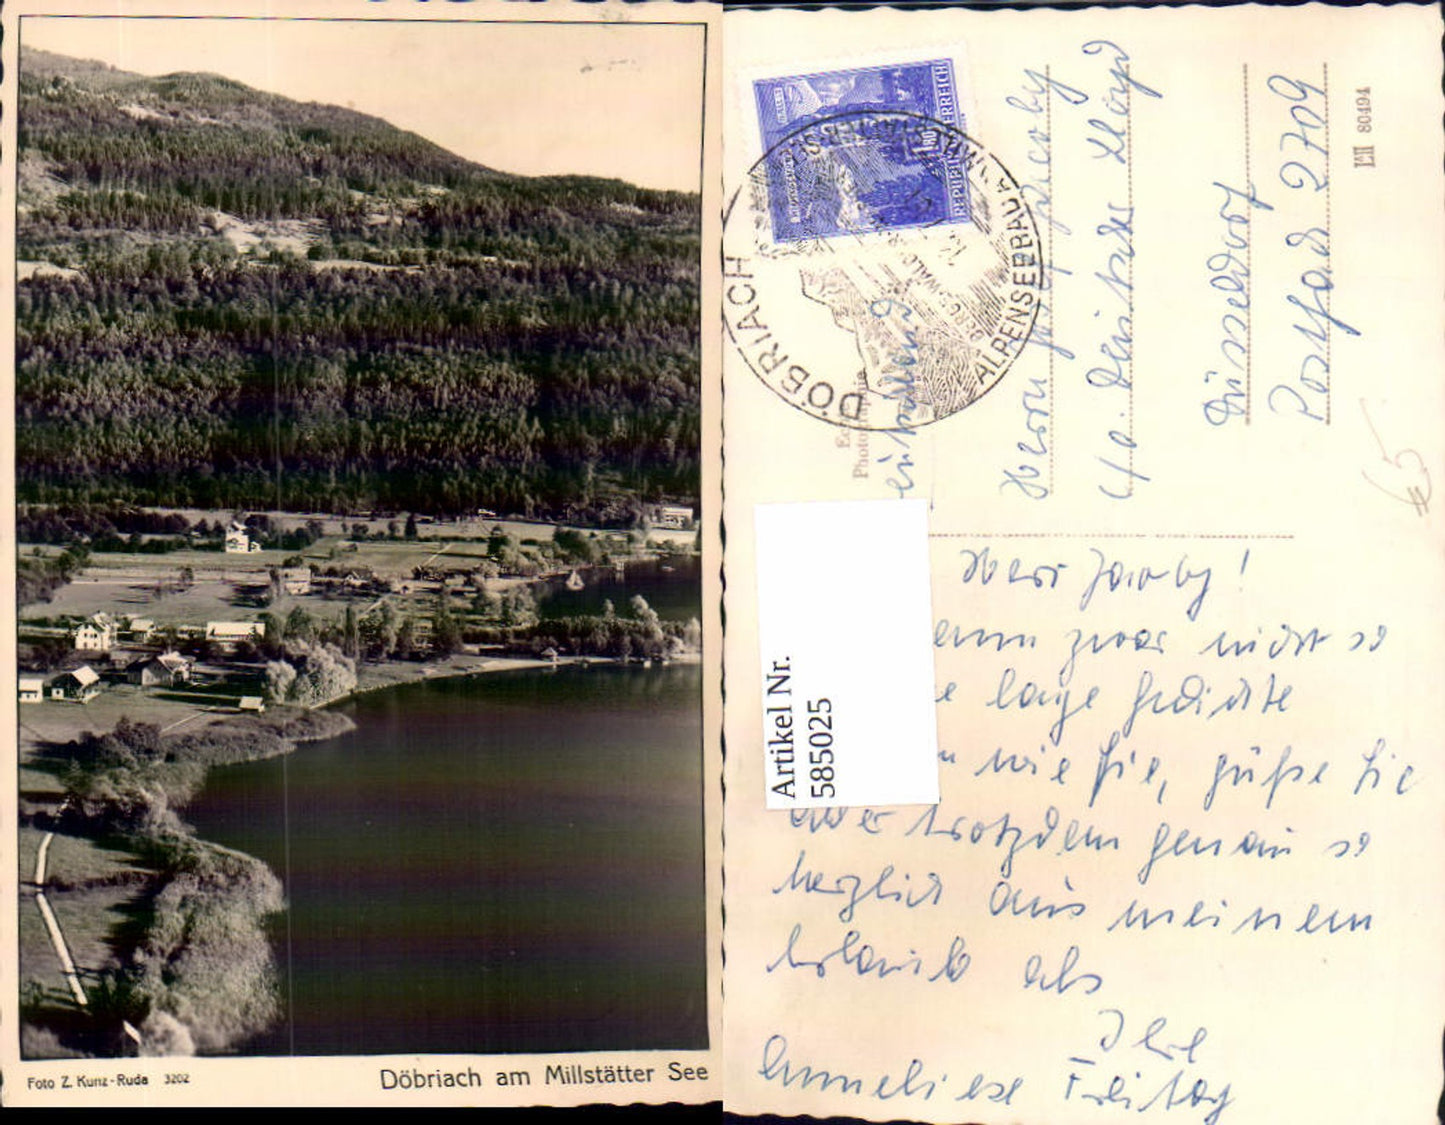 Foto Z. Kunz-Ruda 3202
Döbriach am Millstätter See
REPUBLIK ÖSTERREICH
1.80
DÖBRIACH
ALPENSEEBAD
Herrn Jacoby
c/o. Deutscher Lloyd
Düsseldorf
Postfach 2709
LII 80494
€5
Artikel Nr.
585025
Herr Jacoby!
zwar nicht so
lange Gedichte
wie Sie, grüße Sie
aber trotzdem genau so
herzlich aus meinem
Urlaub als
Ihre
Anneliese Freitag